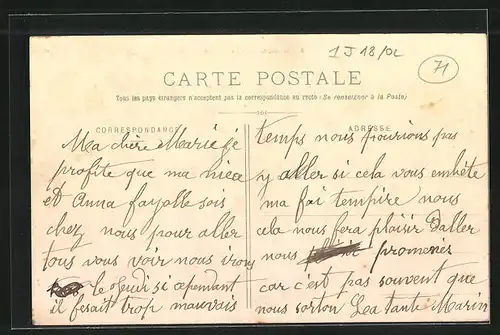 1 J 18/02
71
CARTE POSTALE
Tous les pays étrangers n'acceptent pas la correspondance au recto (Se renseigner à la Poste)
CORRESPONDANCE
Ma chère Marie je
profite que ma niece
et Anna fayolle sois
chez nous pour aller
tous vous voir nous irons
le Jeudi si cependant
il fesait trop mauvais
ADRESSE
temps nous pourions pas
y aller si cela vous embete
ma foi tempire nous
cela nous fera plaisir D'aller
nous promener
car c'est pas souvent que
nous sorton Ta tante Marie